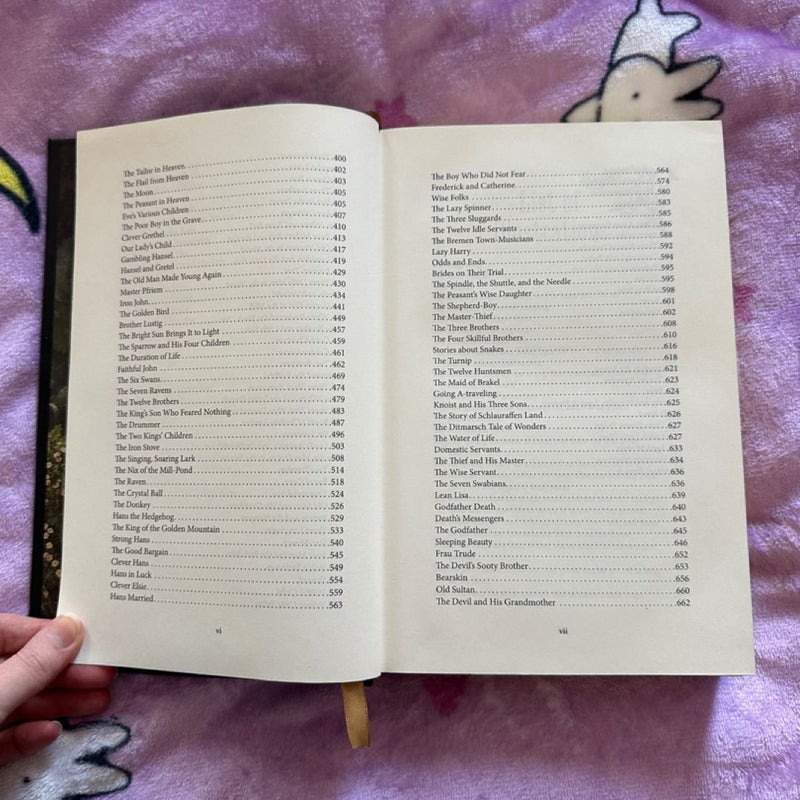 The Tailor in Heaven ... 400
The Flail from Heaven ... 402
The Moon ... 403
The Peasant in Heaven ... 405
Eve's Various Children ... 405
The Poor Boy in the Grave ... 407
Clever Grethel ... 410
Our Lady's Child ... 413
Gambling Hansel ... 417
Hansel and Gretel ... 419
The Old Man Made Young Again ... 429
Master Pfriem ... 430
Iron John ... 434
The Golden Bird ... 441
Brother Lustig ... 449
The Bright Sun Brings It to Light ... 457
The Sparrow and His Four Children ... 459
The Duration of Life ... 461
Faithful John ... 462
The Six Swans ... 469
The Seven Ravens ... 474
The Twelve Brothers ... 479
The King's Son Who Feared Nothing ... 483
The Drummer ... 487
The Two Kings' Children ... 496
The Iron Stove ... 503
The Singing, Soaring Lark ... 508
The Nix of the Mill-Pond ... 514
The Raven ... 518
The Crystal Ball ... 524
The Donkey ... 526
Hans the Hedgehog ... 529
The King of the Golden Mountain ... 533
Strong Hans ... 540
The Good Bargain ... 545
Clever Hans ... 549
Hans in Luck ... 554
Clever Elsie ... 559
Hans Married ... 563
vi
The Boy Who Did Not Fear ... 564
Frederick and Catherine ... 574
Wise Folks ... 580
The Lazy Spinner ... 583
The Three Sluggards ... 585
The Twelve Idle Servants ... 586
The Bremen Town-Musicians ... 588
Lazy Harry ... 592
Odds and Ends ... 594
Brides on Their Trial ... 595
The Spindle, the Shuttle, and the Needle ... 595
The Peasant's Wise Daughter ... 598
The Shepherd-Boy ... 601
The Master-Thief ... 602
The Three Brothers ... 608
The Four Skillful Brothers ... 610
Stories about Snakes ... 616
The Turnip ... 618
The Twelve Huntsmen ... 621
The Maid of Brakel ... 623
Going A-traveling ... 624
Knoist and His Three Sons ... 625
The Story of Schlauraffen Land ... 626
The Ditmarsch Tale of Wonders ... 627
The Water of Life ... 627
Domestic Servants ... 633
The Thief and His Master ... 634
The Wise Servant ... 636
The Seven Swabians ... 636
Lean Lisa ... 639
Godfather Death ... 640
Death's Messengers ... 643
The Godfather ... 645
Sleeping Beauty ... 646
Frau Trude ... 652
The Devil's Sooty Brother ... 653
Bearskin ... 656
Old Sultan ... 660
The Devil and His Grandmother ... 662
vii